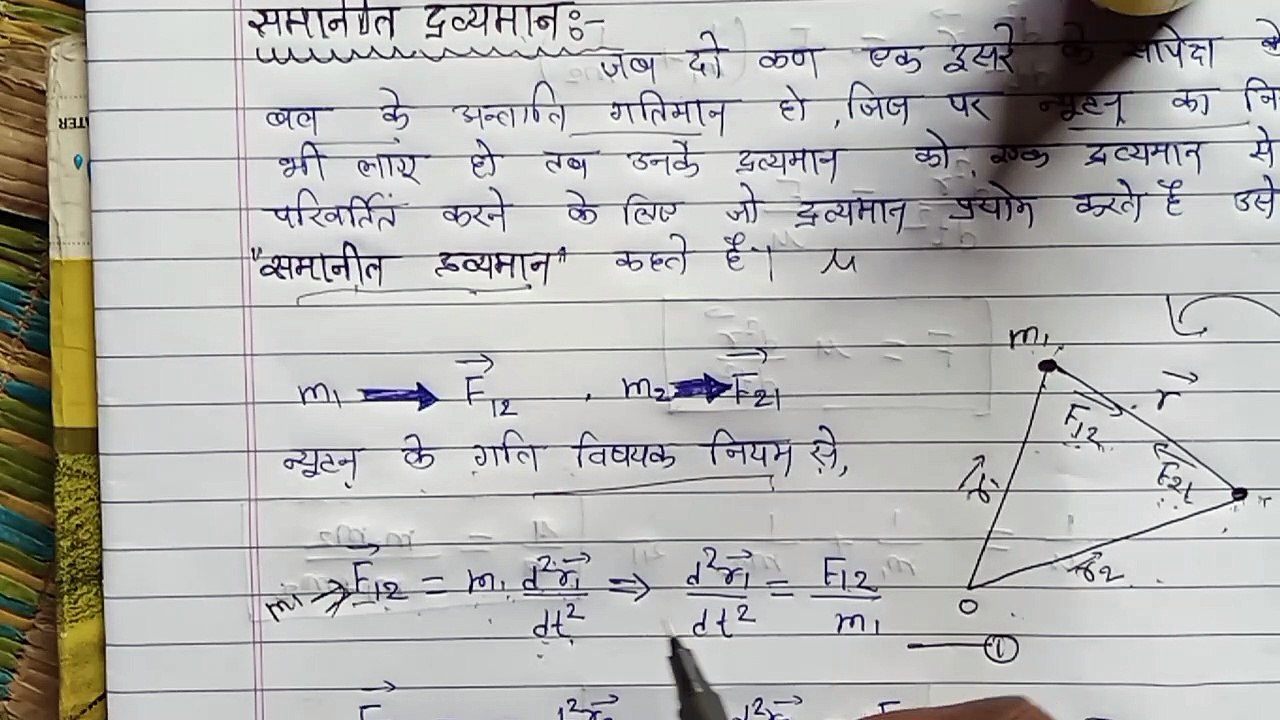 समानीत द्रव्यमान:-
जब दो कण एक दूसरे के सापेक्ष
बल के अन्तर्गत गतिमान हो, जिन पर न्यूटन का नि
भी लागू हो तब उनके द्रव्यमान को एक द्रव्यमान से
परिवर्तित करने के लिए जो द्रव्यमान प्रयोग करते है उसे
"समानीत द्रव्यमान" कहते है। μ
m₁ → F⃗₁₂ , m₂ → F⃗₂₁
न्यूटन के गति विषयक नियम से,
m₁ → F⃗₁₂ = m₁ d²r⃗₁/dt² ⇒ d²r⃗₁/dt² = F₁₂/m₁
—①
m₁
r⃗
F₁₂
F₂₁
r⃗₂
O